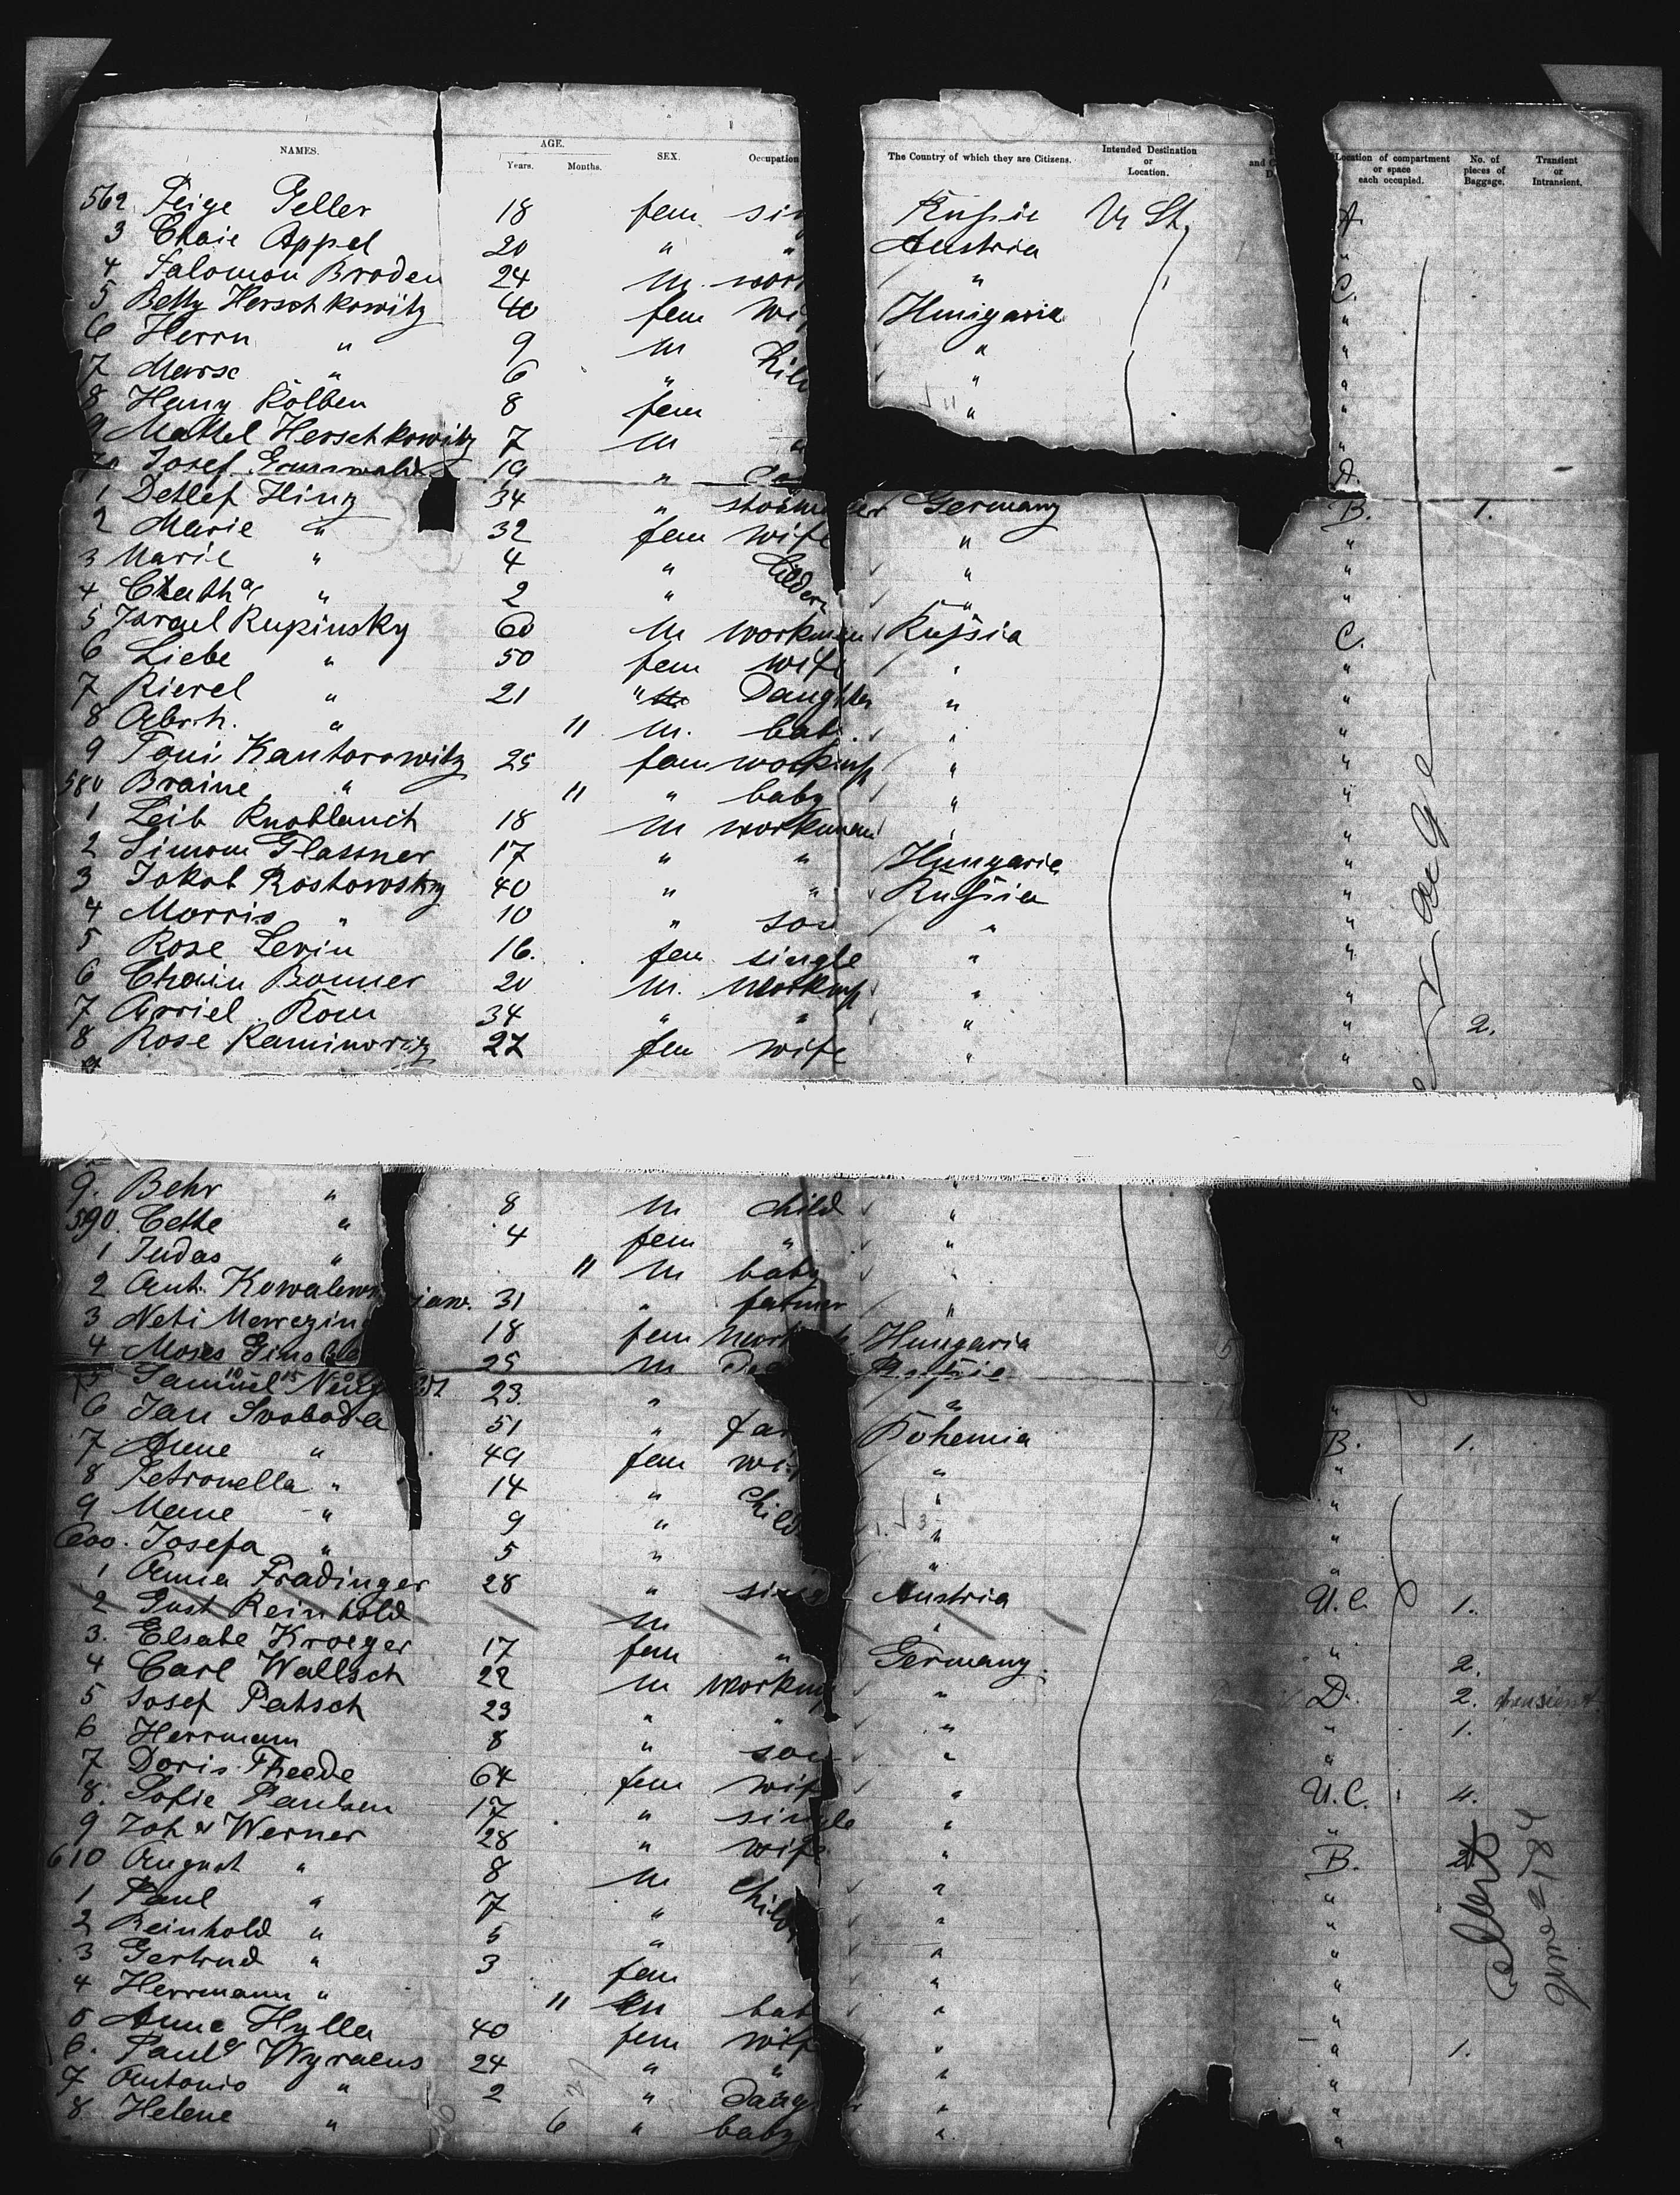 NAMES. AGE. Years. Months. SEX. Occupation The Country of which they are Citizens. Intended Destination or Location. Location of compartment or space each occupied. No. of pieces of Baggage. Transient or Intransient.
562 Feige Geller 18 fem sin Russie U. St. A.
3 Chaie Appel 20 " " Austria "
4 Salomon Broden 24 M. work " C.
5 Betty Herschkowitz 40 fem wi Hungaria "
6 Herrn " 9 M Chil " "
7 " 6 " " "
8 Hany Kolben 8 fem " "
9 Herschkowitz 7 M " "
70 Josef Grunwald 19 " A.
1 Detlef Hinz 34 " Germany B. 1.
2 Marie " 32 fem wife " "
3 Marie " 4 " Childern " "
4 " 2 " " "
5 Israel Rupinsky 60 M workman Russia C.
6 Liebe " 50 fem wife " "
7 " 21 " Daughter " "
8 Abrh. " 11 M. bab " "
9 Toni Kantorowitz 25 fem " "
580 Braine " 11 " baby " "
1 Leib Knoblauch 18 M workman " "
2 Simon Glassner 17 " " Hungaria "
3 Jakob Rostowsky 40 " " Russia "
4 Morris " 10 " son " "
5 Rose Levin 16. fem single " "
6 Chaim Bonner 20 M. " "
7 34 " " " " 2.
8 Rose Kaminowitz 27 fem wife " "
9
9. Behr " 8 M child "
590. " 4 fem " "
1 Judas " 11 M baby "
2 Ant. 31 " farmer "
3 Neti 18 fem work Hungaria
4 Moses 25 M Russie
5 Samuel 23. " "
6 Jan Svoboda 51 " far Bohemia B. 1.
7 Anne " 49 fem wi " "
8 Petronella " 14 " Child " "
9 " 9 " " "
600. Josefa " 5 " " "
1 Anna Fradinger 28 " sing Austria U.C. 1.
2 Gust Reinhold M "
3. Elsabe Kroeger 17 fem " Germany. " 2.
4 Carl Wallsch 22 M workm " D. 2. transient
5 Josef Patsch 23 " " " " 1.
6 Herrmann 8 " son " "
7 Doris Theede 64 fem wif " U.C. 4.
8. Sofie Paulsen 17 " single " "
9 Joh Werner 28 " wife " B. 2
610 August " 8 M Child " "
1 Paul " 7 " " "
2 Reinhold " 5 " " "
3 Gertrud " 3 fem " "
4 Herrmann " 11 M bab " "
5 Anna Hylla 40 fem wif " " 1.
6. 24 " " " "
7 Antonio " 2 " Daug " "
8 Helene " 6 " baby " "